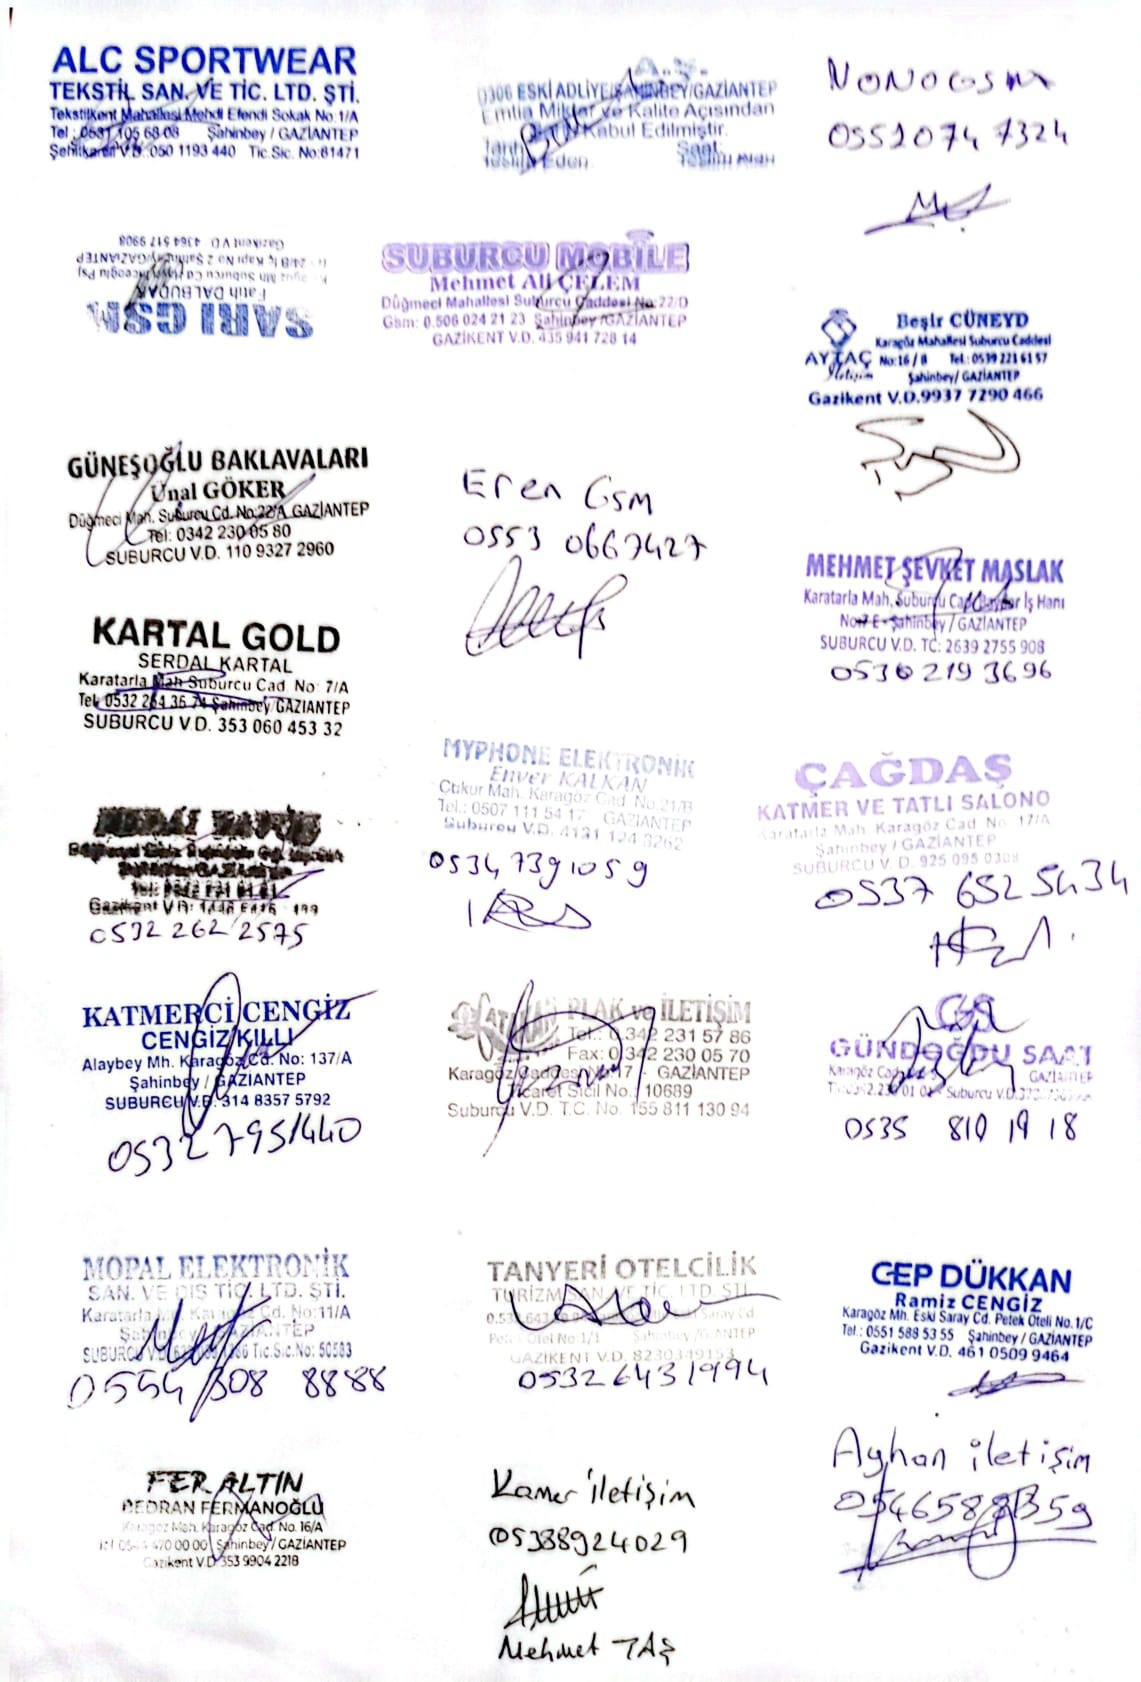 ALC SPORTWEAR
TEKSTİL SAN. VE TİC. LTD. ŞTİ.
Tekstilkent Mahallesi Mehdi Efendi Sokak No:1/A
Tel : 0531 105 68 08 Şahinbey / GAZİANTEP
Şehitkamil V.D.:050 1193 440 Tic.Sic. No:81471
A.Ş.
0306 ESKİ ADLİYE ŞAHİNBEY/GAZİANTEP
Emtia Miktar ve Kalite Açısından
Kabul Edilmiştir.
Tarih Saat:
Teslim Eden Teslim Alan
NONOGSM
0552074 7324
SARI GSM
Fatih DALBUDAK
24/B İç Kapı No 2 Şahinbey/GAZİANTEP
Gazikent V.D. 4364 517 9908
SUBURCU MOBİLE
Mehmet Ali ÇELEM
Düğmeci Mahallesi Suburcu Caddesi No:22/D
Gsm: 0.506 024 21 23 Şahinbey /GAZİANTEP
GAZİKENT V.D. 435 941 728 14
Beşir CÜNEYD
Karagöz Mahallesi Suburcu Caddesi
AYTAÇ No:16 / B Tel.: 0539 221 61 57
İletişim Şahinbey/ GAZİANTEP
Gazikent V.D.9937 7290 466
GÜNEŞOĞLU BAKLAVALARI
Ünal GÖKER
Düğmeci Mah. Suburcu Cd. No:22/A GAZİANTEP
Tel: 0342 230 05 80
SUBURCU V.D. 110 9327 2960
Eren Gsm
0553 0667427
MEHMET ŞEVKET MASLAK
Karatarla Mah. Suburcu Cad. İş Hanı
No:7 E - Şahinbey / GAZİANTEP
SUBURCU V.D. TC: 2639 2755 908
0530 219 3696
KARTAL GOLD
SERDAL KARTAL
Karatarla Mah Suburcu Cad. No: 7/A
Tel. 0532 264 36 74 Şahinbey/GAZİANTEP
SUBURCU V.D. 353 060 453 32
MYPHONE ELEKTRONİK
Enver KALKAN
Çukur Mah. Karagöz Cad. No.21/B
Tel.: 0507 111 54 17 GAZİANTEP
Suburcu V.D. 4131 124 3262
0534 739 1059
ÇAĞDAŞ
KATMER VE TATLI SALONO
Karatarla Mah. Karagöz Cad No. 17/A
Şahinbey / GAZİANTEP
SUBURCU V. D. 925 095 0308
0537 652 5434
Gazikent V.D:
0532 262 2575
KATMERCİ CENGİZ
CENGİZ KILLI
Alaybey Mh. Karagöz Cd. No: 137/A
Şahinbey / GAZİANTEP
SUBURCU V.D. 314 8357 5792
0532 7951440
PLAK ve İLETİŞİM
Tel.: 0.342 231 57 86
Fax: 0.342 230 05 70
Karagöz Caddesi No:17 - GAZİANTEP
Ticaret Sicil No.: 10689
Suburcu V.D. T.C. No. 155 811 130 94
GS
GÜNDOĞDU SAAT
Karagöz Cad. GAZİANTEP
Suburcu V.D.
0535 810 19 18
MOPAL ELEKTRONİK
SAN. VE DIŞ TİC. LTD. ŞTİ.
Karatarla Mah. Karagöz Cd. No:11/A
Şahinbey / GAZİANTEP
SUBURCU V.D. Tic.Sic.No: 50583
0554 308 8888
TANYERİ OTELCİLİK
TURİZM SAN. VE TİC. LTD. ŞTİ.
Saray Cd.
Petek Otel No:1/1 Şahinbey /GAZİANTEP
GAZİKENT V.D. 8230349153
0532 6431994
CEP DÜKKAN
Ramiz CENGİZ
Karagöz Mh. Eski Saray Cd. Petek Oteli No.1/C
Tel.: 0551 588 53 55 Şahinbey / GAZİANTEP
Gazikent V.D. 461 0509 9464
FER ALTIN
BEDRAN FERMANOĞLU
Karagöz Mah. Karagöz Cad. No. 16/A
470 00 00 Şahinbey/ GAZİANTEP
Gazikent V.D 353 9904 2218
Kamer İletişim
05388924029
Mehmet TAŞ
Ayhan iletişim
05465881359